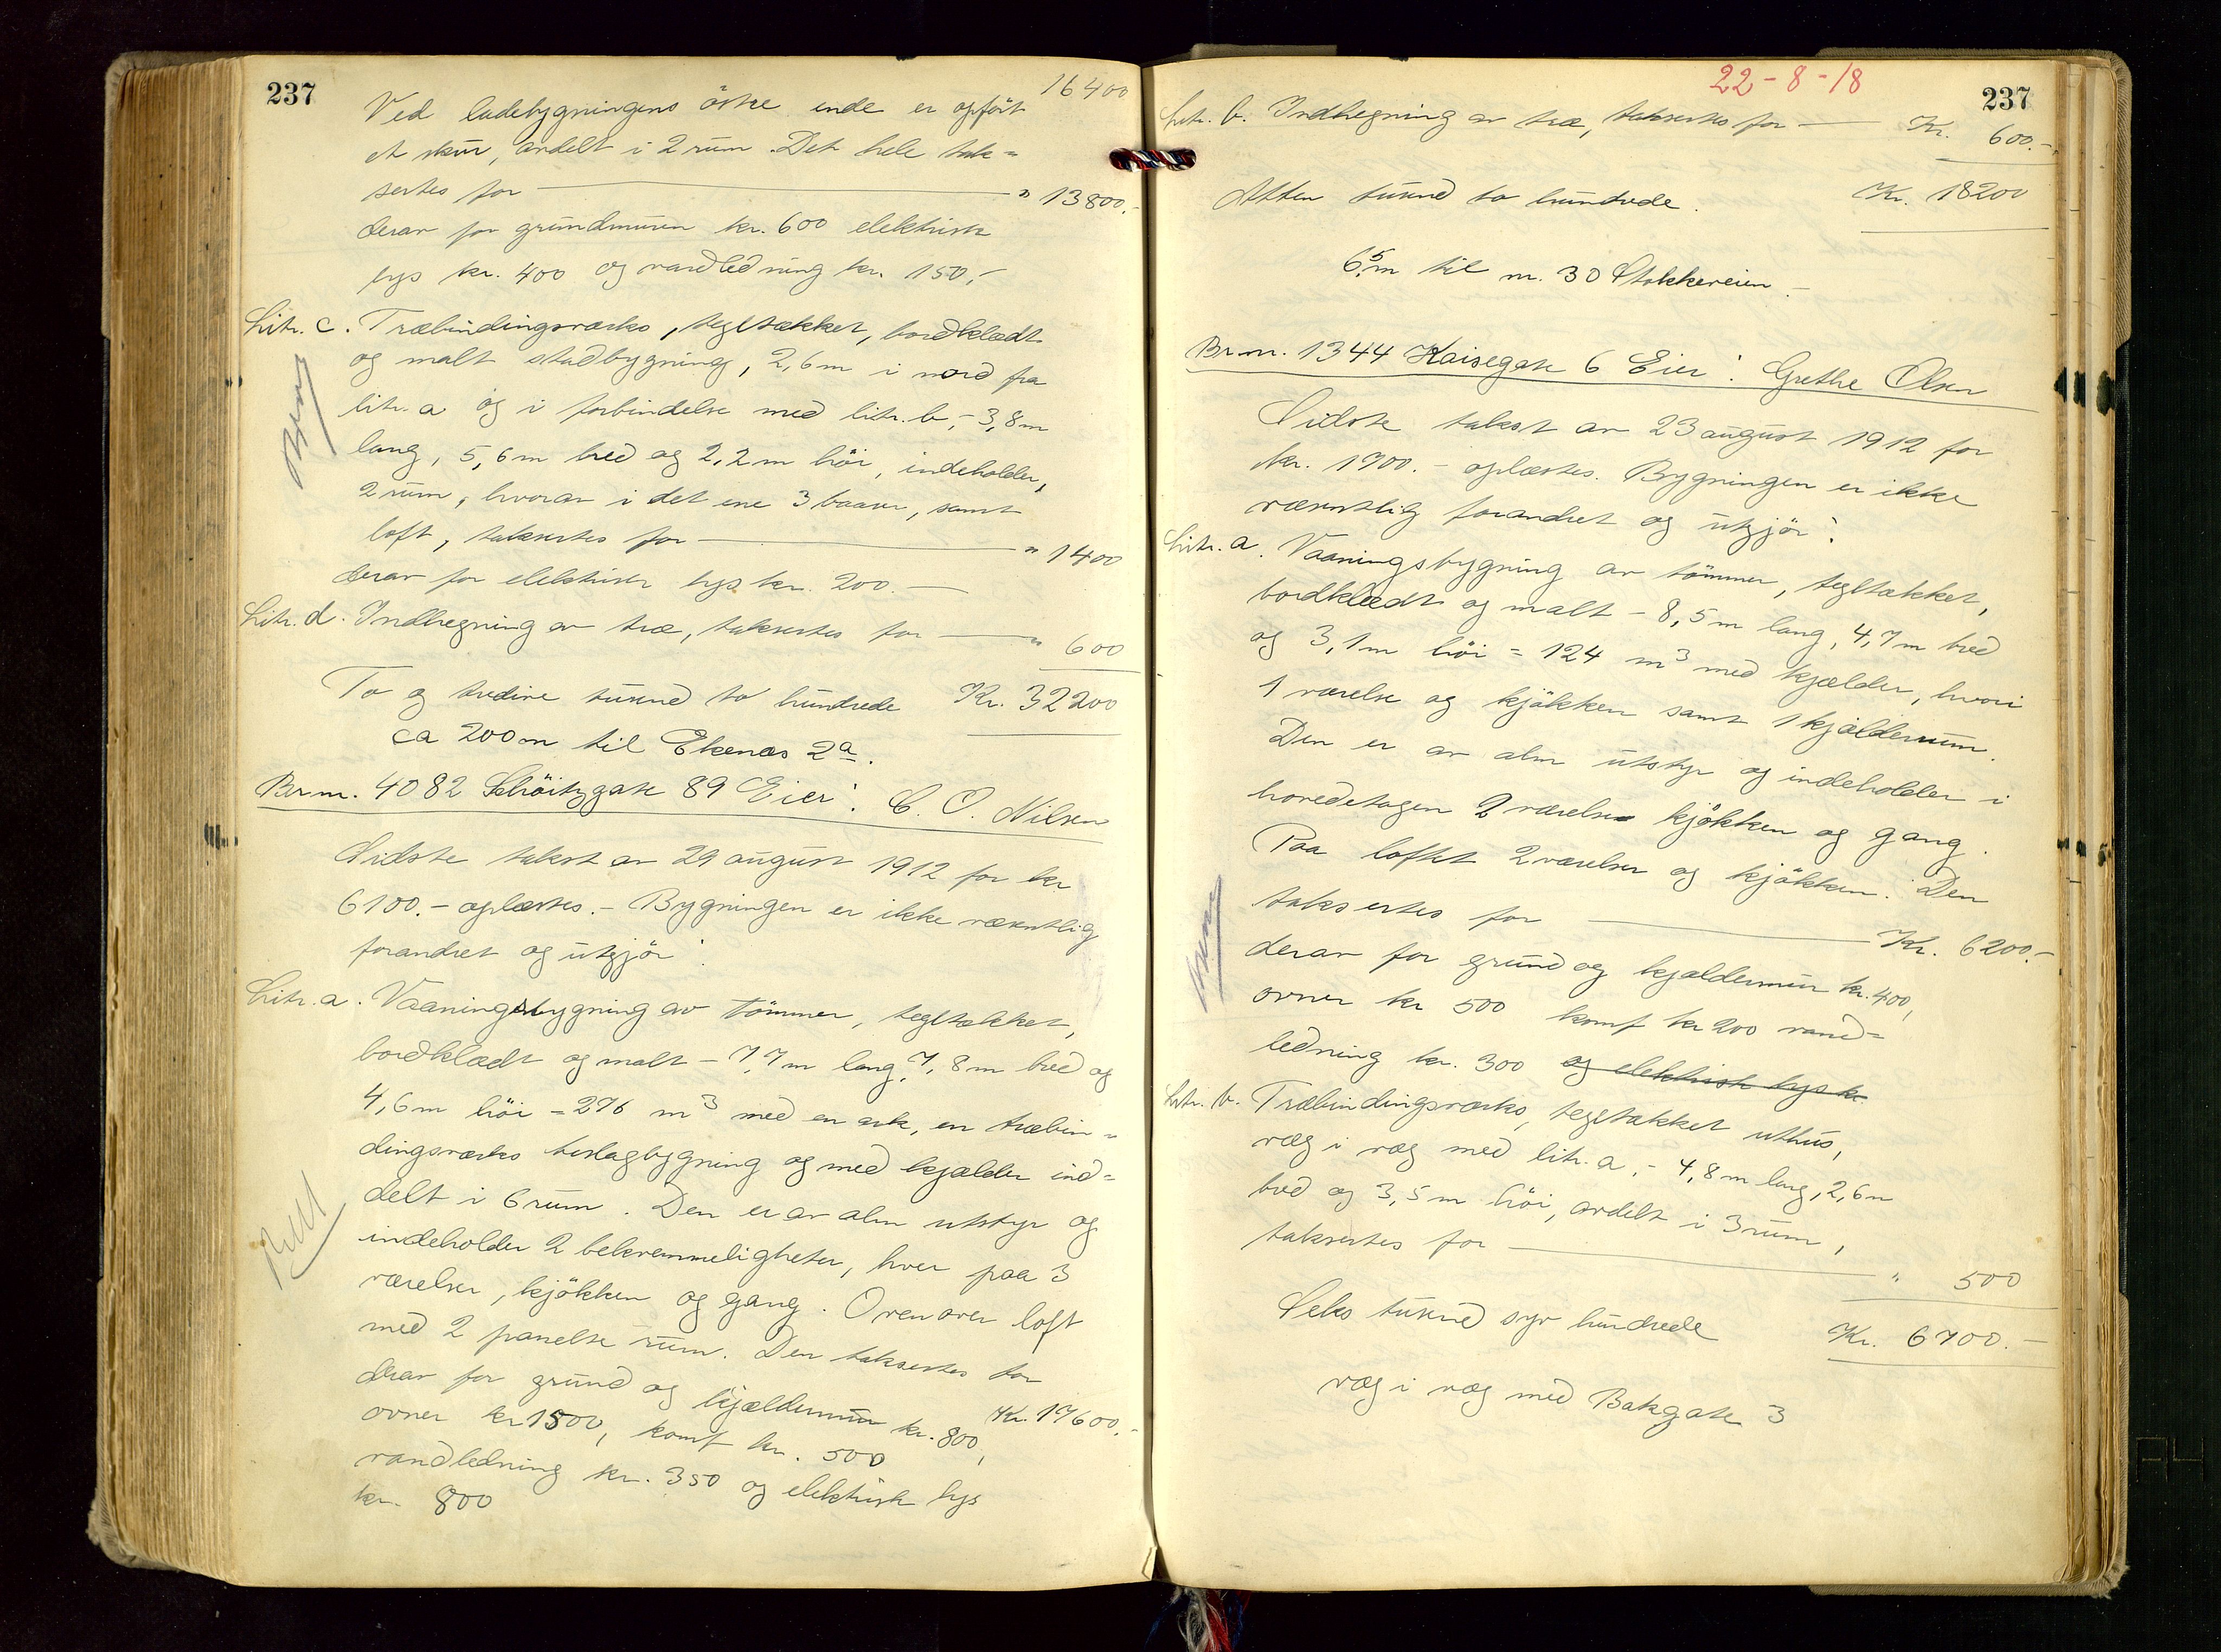 237
16400
Ved ladebygningens östre ende er opfört
et skur, avdelt i 2 rum. Det hele tak=
sertes for — " 13800.-
derav for grundmuren kr. 600 elektrisk
lys kr. 400 og vandledning kr. 150,-
Litr. c. Træbindingsværks, tegltækket, bordklædt
og malt staldbygning, 2,6m i nord fra
litr. a og i forbindelse med litr. b,- 3,8m
lang, 5,6m bred og 2,2m höi, indeholder,
2 rum, hvorav i det ene 3 baaser, samt
loft, taksertes for — " 1400
derav for elektrisk lys kr. 200.—
Litr. d. Indhegning av træ, taksertes for — " 600
To og tredive tusend to hundrede Kr. 32200
ca 200m til Ekenæs 2a.
Br.nr. 4082 Schöitzgate 89 Eier: C. O. Nilsen
Sidste takst av 29 august 1912 for kr
6100.- oplæstes.- Bygningen er ikke væsentlig
forandret og utgjör:
Litr. a. Vaaningsbygning av tömmer, tegltækket,
bordklædt og malt - 7,7m lang, 7,8m bred og
4,6m höi = 276 m3 med en ark, en træbin=
dingsværks tilslagbygning og med kjælder ind=
delt i 6 rum. Den er av alm utstyr og
indeholder 2 bekvemmeligheter, hver paa 3
værelser, kjökken og gang. Ovenover loft
med 2 panelte rum. Den taksertes for
Kr. 17600.-
derav for grund og kjældermur kr. 800,
ovner kr 1500, komf kr. 500
vandledning kr. 350 og elektrisk lys
kr. 800
22-8-18
237
Litr. b. Indhegning av træ, taksertes for — Kr. 600.-
Atten tusend to hundrede. Kr. 18200
6,5m til nr. 30 Stokkeveien.-
Br.nr. 1344 Kaisegate 6 Eier: Grethe Olsen
Sidste takst av 23 august 1912 for
kr. 1900.- oplæstes. Bygningen er ikke
væsentlig forandret og utgjör:
Litr. a. Vaaningsbygning av tömmer, tegltækket,
bordklædt og malt - 8,5m lang, 4,7m bred
og 3,1m höi = 124 m3 med kjælder, hvori
1 værelse og kjökken samt 1 kjælderrum.
Den er av alm utstyr og indeholder i
hovedetagen 2 værelser kjökken og gang.
Paa loftet 2 værelser og kjökken. Den
taksertes for — Kr. 6200.-
derav for grund og kjældermur kr. 400,
ovner kr 500 komf kr 200 vand=
ledning kr. 300 og elektrisk lys kr.
Litr. b. Træbindingsværks, tegltækket uthus,
væg i væg med litr. a,- 4,8m lang, 2,6m
bred og 3,5m höi, avdelt i 3 rum,
taksertes for — " 500
Seks tusend syv hundrede Kr. 6700.-
væg i væg med Bakgate 3